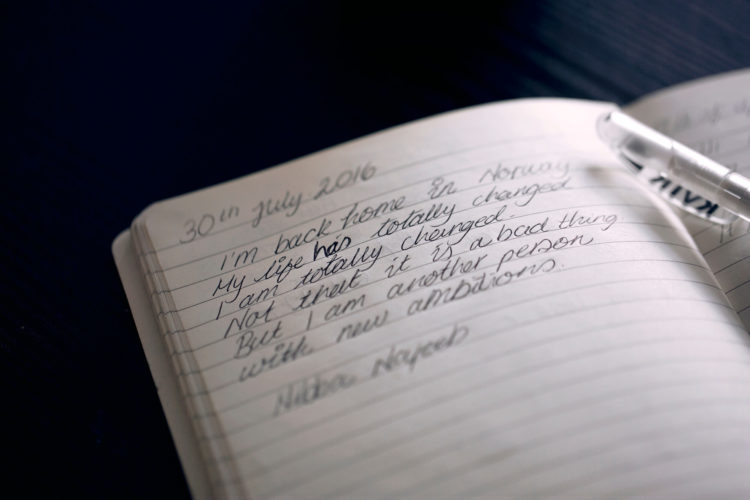 30th July 2016
I'm back home in Norway
My life has totally changed
I am totally changed.
Not that it is a bad thing
But I am another person
with new ambitions.
Najeeb